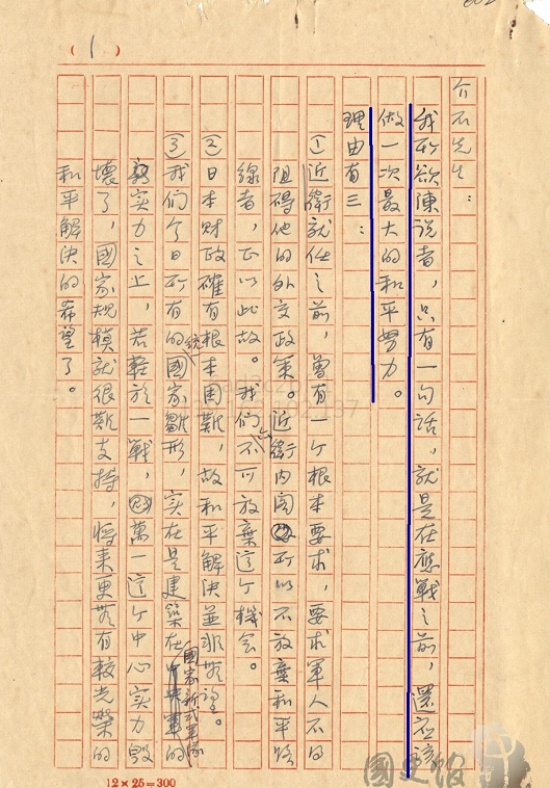 （1）
介石先生：
我所欲陳說者，只有一句話，就是在應戰之前，還應該
做一次最大的和平努力。
理由有三：
①近衛就任之前，曾有一个根本要求，要求軍人不得
阻碍他的外交政策。近衛內閣所以不放棄和平路
線者，正以此故。我們亦不可放棄這个機会。
②日本財政確有根本困難，故和平解決並非無望。
③我們今日所有的統一國家雛形，实在是建築在國家新式軍隊的
实力之上，若輕於一戰，萬一這个中心实力毀
壞了，國家規模就很難支持，將来更無有較光榮的
和平解決的希望了。
12×25=300
國史館